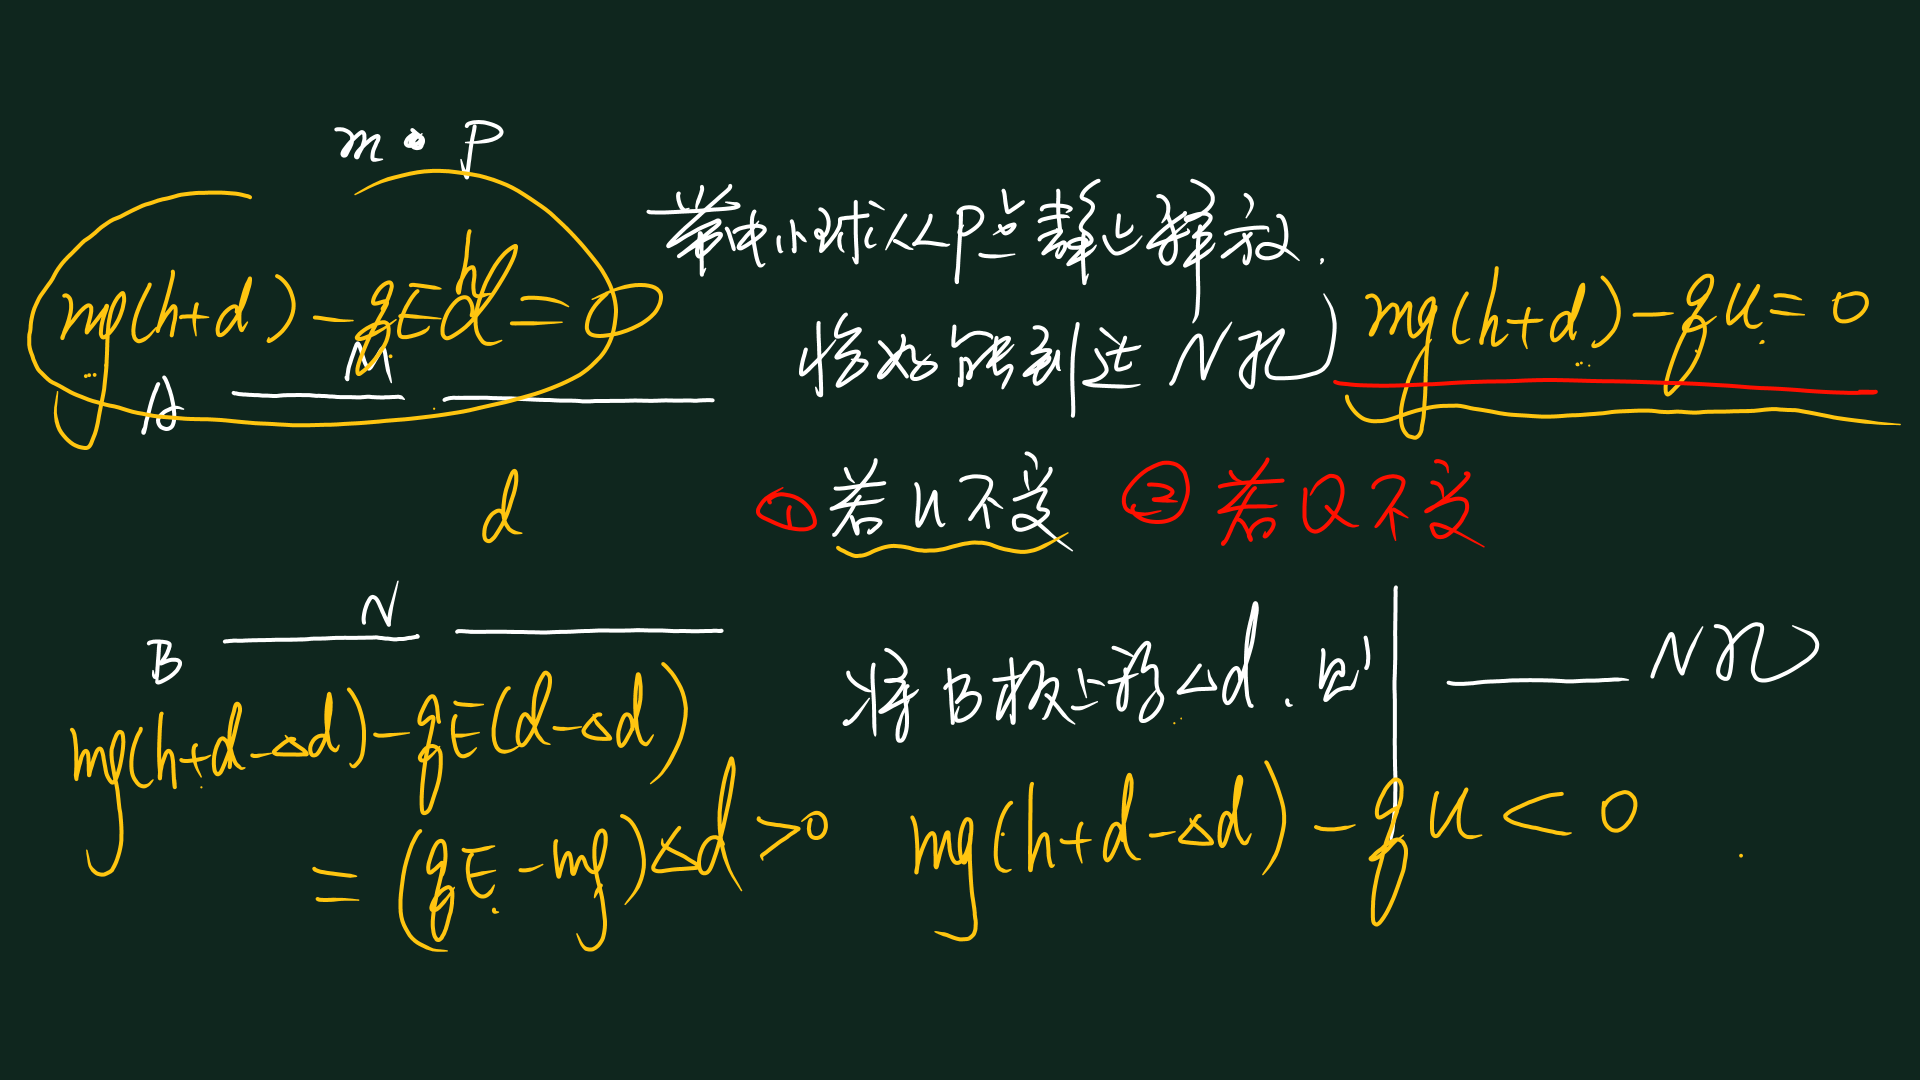 m · P
带电小球从P点静止释放.
h
mg(h+d)-qEd=0
恰好能到达N孔
mg(h+d)-qU=0
M
A
d
①若U不变
②若Q不变
N
B
将B板上移△d.则
N孔
mg(h+d-△d)-qE(d-△d)
=(qE-mg)△d>0
mg(h+d-△d)-qU<0